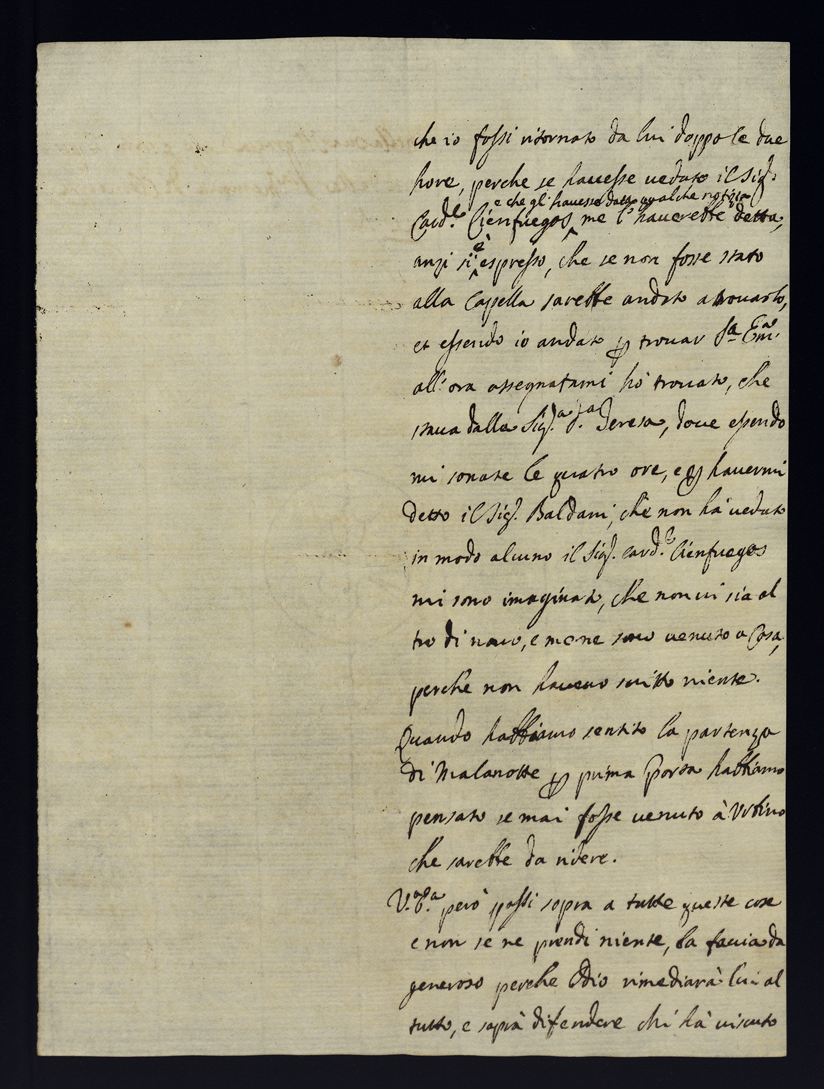 che io fossi ritornato da lui doppo le due
hore, perche se havesse veduto il Sig.
e che gl'havesse dato qualche notizia
Card.le Cienfuegos me l'haverebbe detta,
anzi si è espresso, che se non fosse stato
alla Capella sarebbe andato a trovarlo,
et essendo io andato p trovar S.a Em.a
all'ora assegnatami hò trovato, che
stava dalla Sig.a D.a Teresa, dove essendo
mi sonate le quatro ore, e p havermi
detto il Sig. Baldani, che non hà veduto
in modo alcuno il Sig. Card.le Cienfuegos
mi sono imaginato, che non vi sia al
tro di novo, e me ne sono venuto a Casa,
perche non havevo scritto niente.
Quando habbiamo sentito la partenza
di Malanotte p prima Porta habbiamo
pensato se mai fosse venuto à Urbino
che sarebbe da ridere.
V.a E.a però passi sopra a tutte queste cose
e non se ne prendi niente, la faccia da
generoso perche Dio rimediarà lui al
tutto, e saprà difendere chi hà vissuto